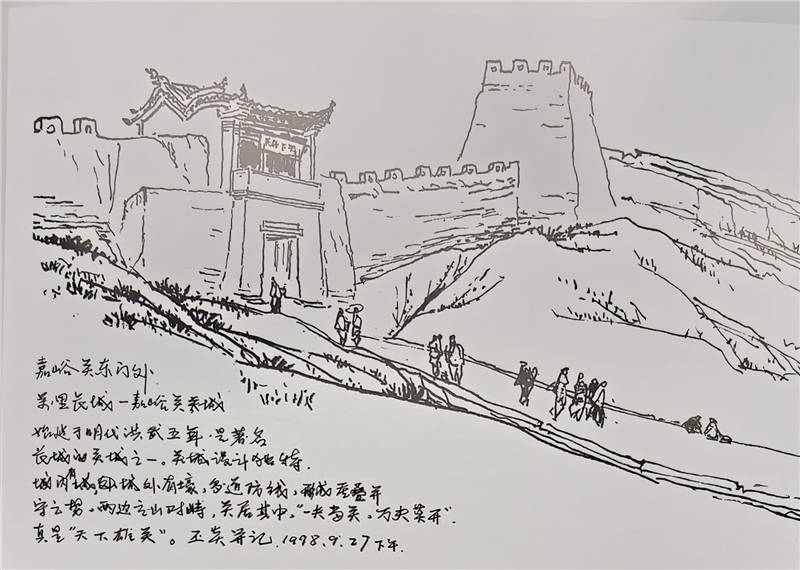 天下雄关
嘉峪关东门外
万里长城一嘉峪关关城
始建于明代洪武五年·是著名
长城的关城之一。关城设计独特.
城内有城,城外有壕,多道防线,形成重叠并
守之势。两边之山对峙,关居其中,"一夫当关,万夫莫开".
真是"天下雄关"。 并记.1998.9.27下午.